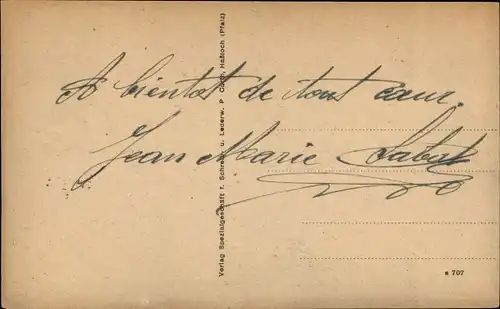 A bientot de tout cœur.
Jean Marie
Verlag Spezialgeschäft f. Schreib- u. Lederw. P. Haßloch (Pfalz)
s 707